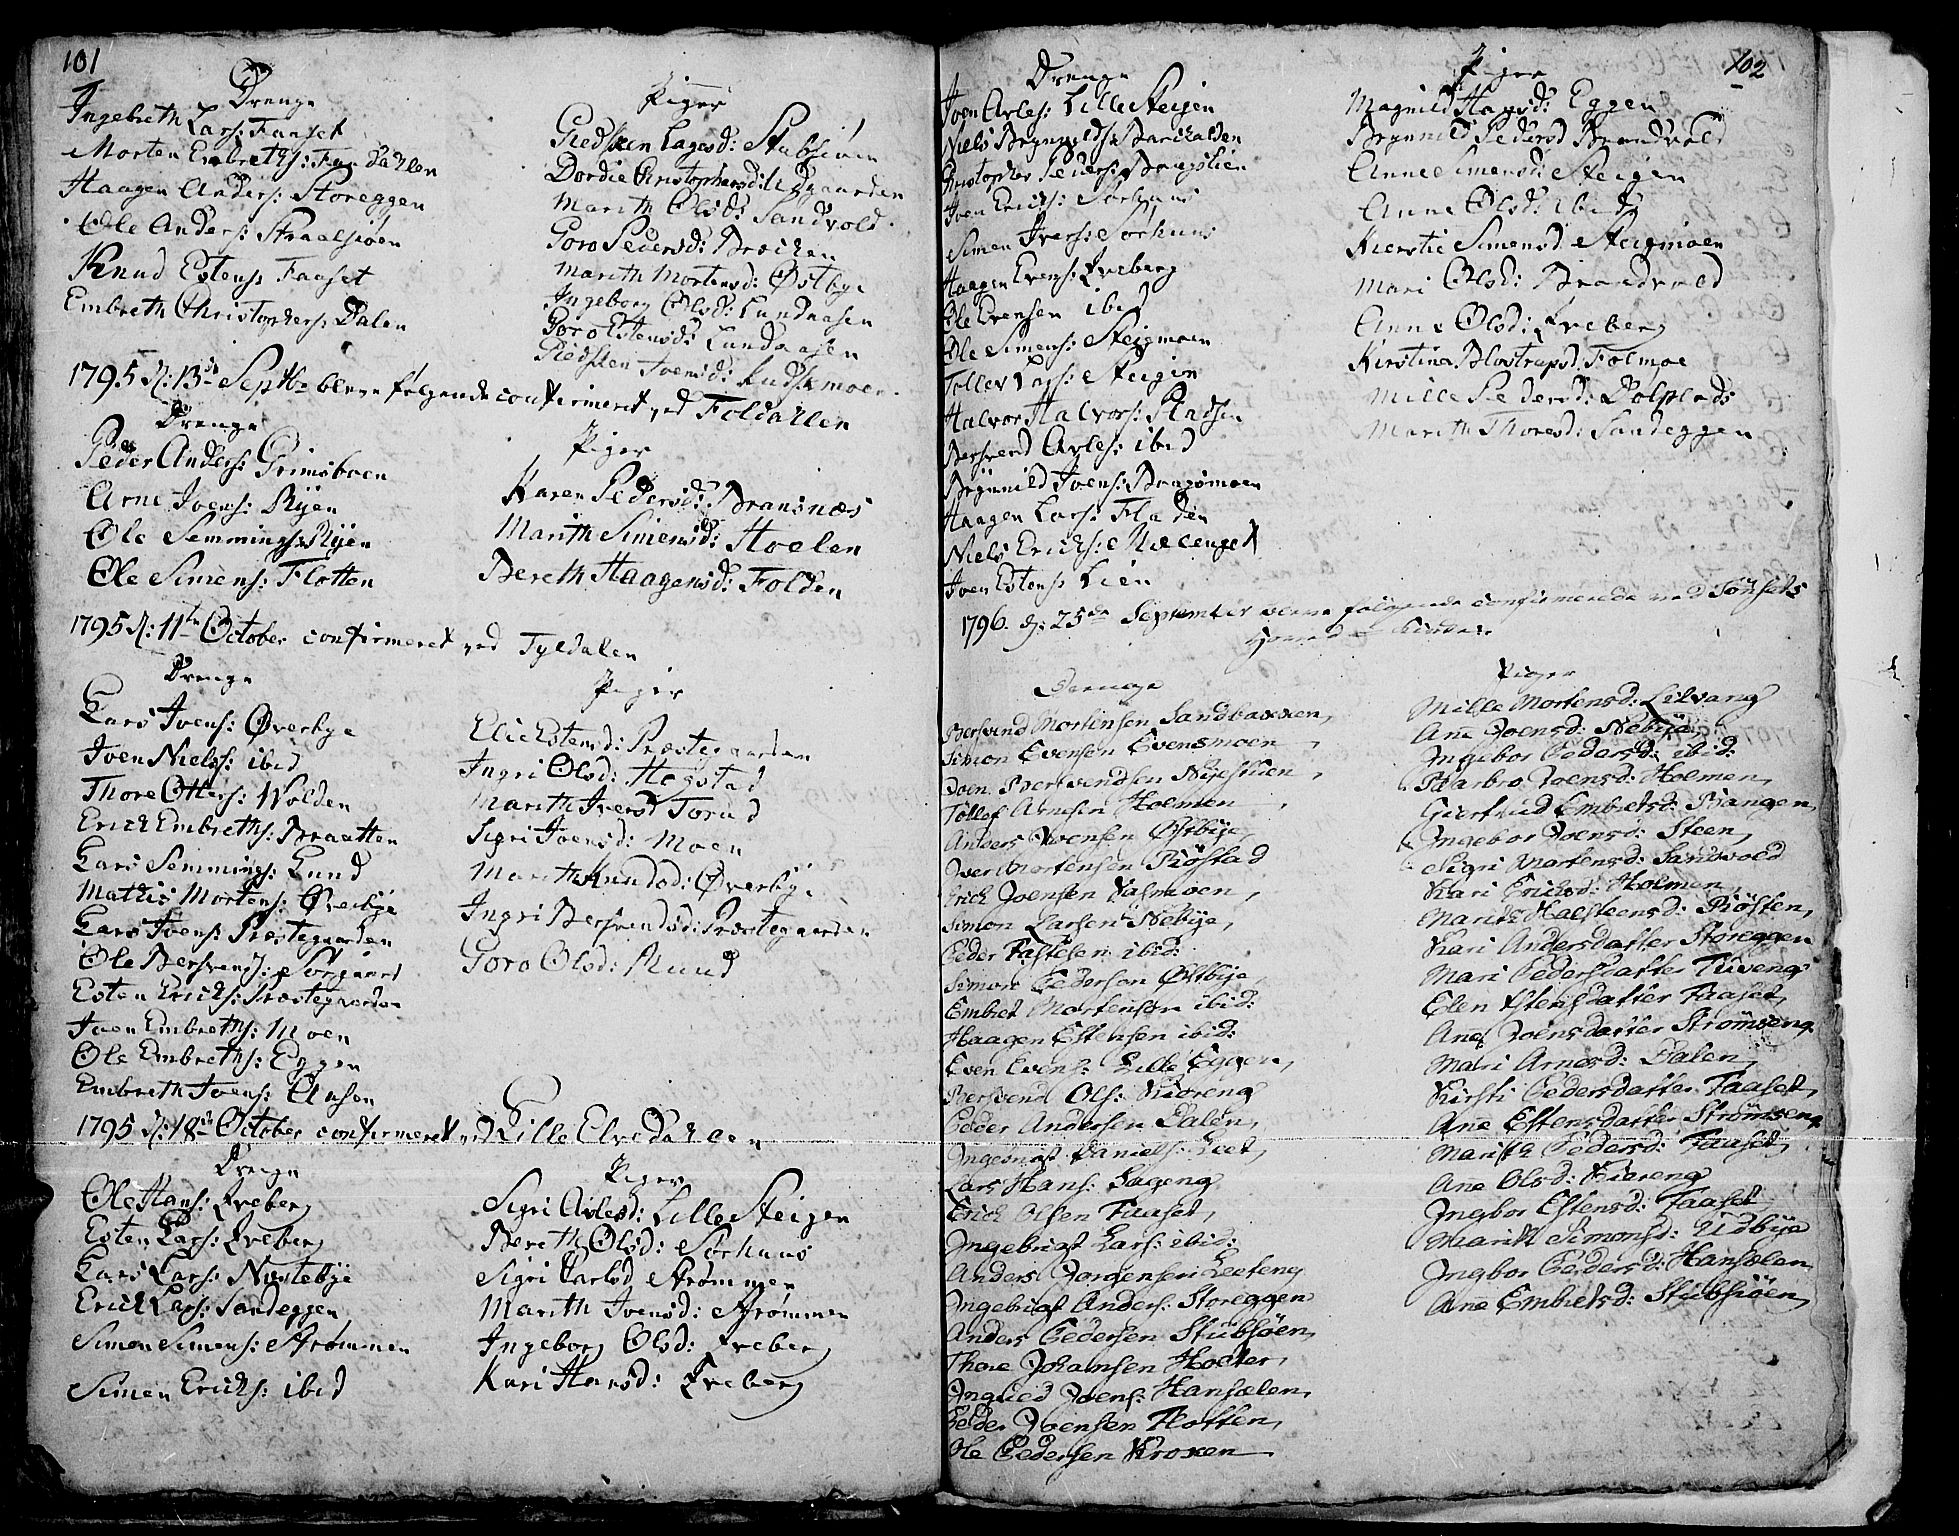 101
Drenge
Ingebreth Lars: Faaset
Morten Embreths: Faadahlen
Haagen Anders: Storeggen
Ole Anders: Straalsiøen
Knud Estens: Faaset
Embreth Christophers: Dalen
Piger
Giedsken Lagesd: Stubsiøen
Dordie Christophersd: Udgaarden
Marith Olsd: Sandvold
Goro Pedersd: Brochen
Marith Mortensd: Østbye
Ingeborg Olsd: Lundaasen
Goro Estensd: Lundaasen
Giedsken Joensd: Rudsmoen
1795 d: 13de Septbr bleve følgende confirmeret ved Foldallen
Drenge
Peder Anders: Grimsboen
Arne Joens: Ryen
Ole Semmings: Ryen
Ole Simens: Flotten
Piger
Karen Pedersd: Bransnæs
Marith Simensd: Hoelen
Bereth Haagensd: Folden
1795 d: 11te October confirmeret ved Tyldalen
Drenge
Lars Joens: Øverbye
Joen Niels: ibid
Thore Otters: Volden
Erich Embreths: Braatten
Lars Semmings: Lund
Mathis Mortens: Øverbye
Lars Joens: Præstegaarden
Ole Bersvends: Sorgaard
Esten Erichs: Præstegaarden
Joen Embreths: Moen
Ole Embreths: Eggen
Embreth Joens: Aasen
Piger
Elie Estensd: Præstegaarden
Ingri Olsd: Hogstad
Marith Iversd Torud
Sigri Joensd: Moen
Marith Knudsd: Øverbye
Ingri Bersvendsd: Præstegaarden
Goro Olsd: Ruud
1795 d: 18de October confirmeret ved Lille Elvedahlen
Drenge
Ole Hans: Kveberg
Esten Lars: Kveberg
Lars Lars: Næstebye
Erich Lars: Sandeggen
Simen Simens: Strømmen
Simen Erichs: ibid
Piger
Sigri Avlesd: Lille Steigen
Bereth Olsd: Sørhuus
Sigri Carlsd Strømmen
Marith Joensd: Strømmen
Ingeborg Olsd: Kveberg
Kari Hansd: Kveberg
102
Drenge
Joen Avles: Lille Steigen
Niels Brynnilds: Barkalden
Christopher Peders: Baugstien
Joen Erichs: Sørhuus
Simen Ivers: Sørhuus
Haagen Evens: Kveberg
Ole Evensen ibid
Ole Simens: Steigmoen
Tollev Lars: Steigen
Halvor Halvors: Stadsen
Bersvend Avles: ibid
Brynnild Joens: Baugsmoen
Haagen Lars: Fladen
Niels Erichs: Melenget
Joen Estens: Lien
Piger
Magnild Hagesd: Eggen
Brynnild Pedersd Brandvold
Anne Simensd: Steigen
Anne Olsd: ibid
Kierstie Simensd Steigmoen
Mari Olsd: Brandvold
Anne Olsd: Kveberg
Kirstina Blostrupsd: Folmoe
Mille Pedersd: Dolplads
Marith Thoresd: Sandeggen
1796. d: 25de September bleve følgende confirmerede ved Tønsets
Hoved Kirke.
Drenge
Bersvend Mortensen Sandbakken,
Simon Evensen Evensmoen,
Joen Bersvendsen Nyestuen,
Tollef Arnesen Hoemen,
Anders Joensen Østbye,
Iver Mortensen Riøstad
Erich Joensen Vasmoen,
Simon Larsen Nebye,
Peder Fastesen ibid:
Simon Pedersen Østbye,
Embret Mortensen ibid:
Haagen Estensen ibid:
Even Evens: Lille Eggen,
Bersvend Ols: Kioreng
Peder Andersen Dalen,
Ingebrigt Daniels: Leet,
Lars Hans: Hageng
Erich Olsen Faaset,
Ingebrigt Lars: ibid:
Anders Jørgensen Leeteng
Ingebrigt Anders: Storeggen
Anders Pedersen Stubsøen,
Thore Johansen Hoelen,
Ingvild Joens: Hansælen,
Peder Joensen Flotten,
Ole Pedersen Kroken
Piger
Mille Mortensd: Lilvang
Ane Joensd: Nebye,
Ingebor Pedersd: ibid:
Baarbro Joensd: Hoemen,
Giertrud Embretsd: Bangen,
Ingebor Joensd: Steen,
Sigri Mortensd: Sandvold
Kari Erichsd: Holmen,
Marith Halsteensd: Riøsten,
Kari Andersdatter Storeggen
Mari Pedersdatter Tuveng
Elen Estensdatter Faaset,
Ane Joensdatter Strømseng
Mari Arnesd: Dalen,
Kirsti Pedersdatter Faaset,
Ane Estensdatter Strømseng
Marith Pedersd: Faaset,
Ane Olsd: Kiøreng
Ingbor Estensd: Faaset
Marith Simonsd: Udbye
Ingbor Pedersd: Hansælen
Ane Embretsd: Stubsiøen,